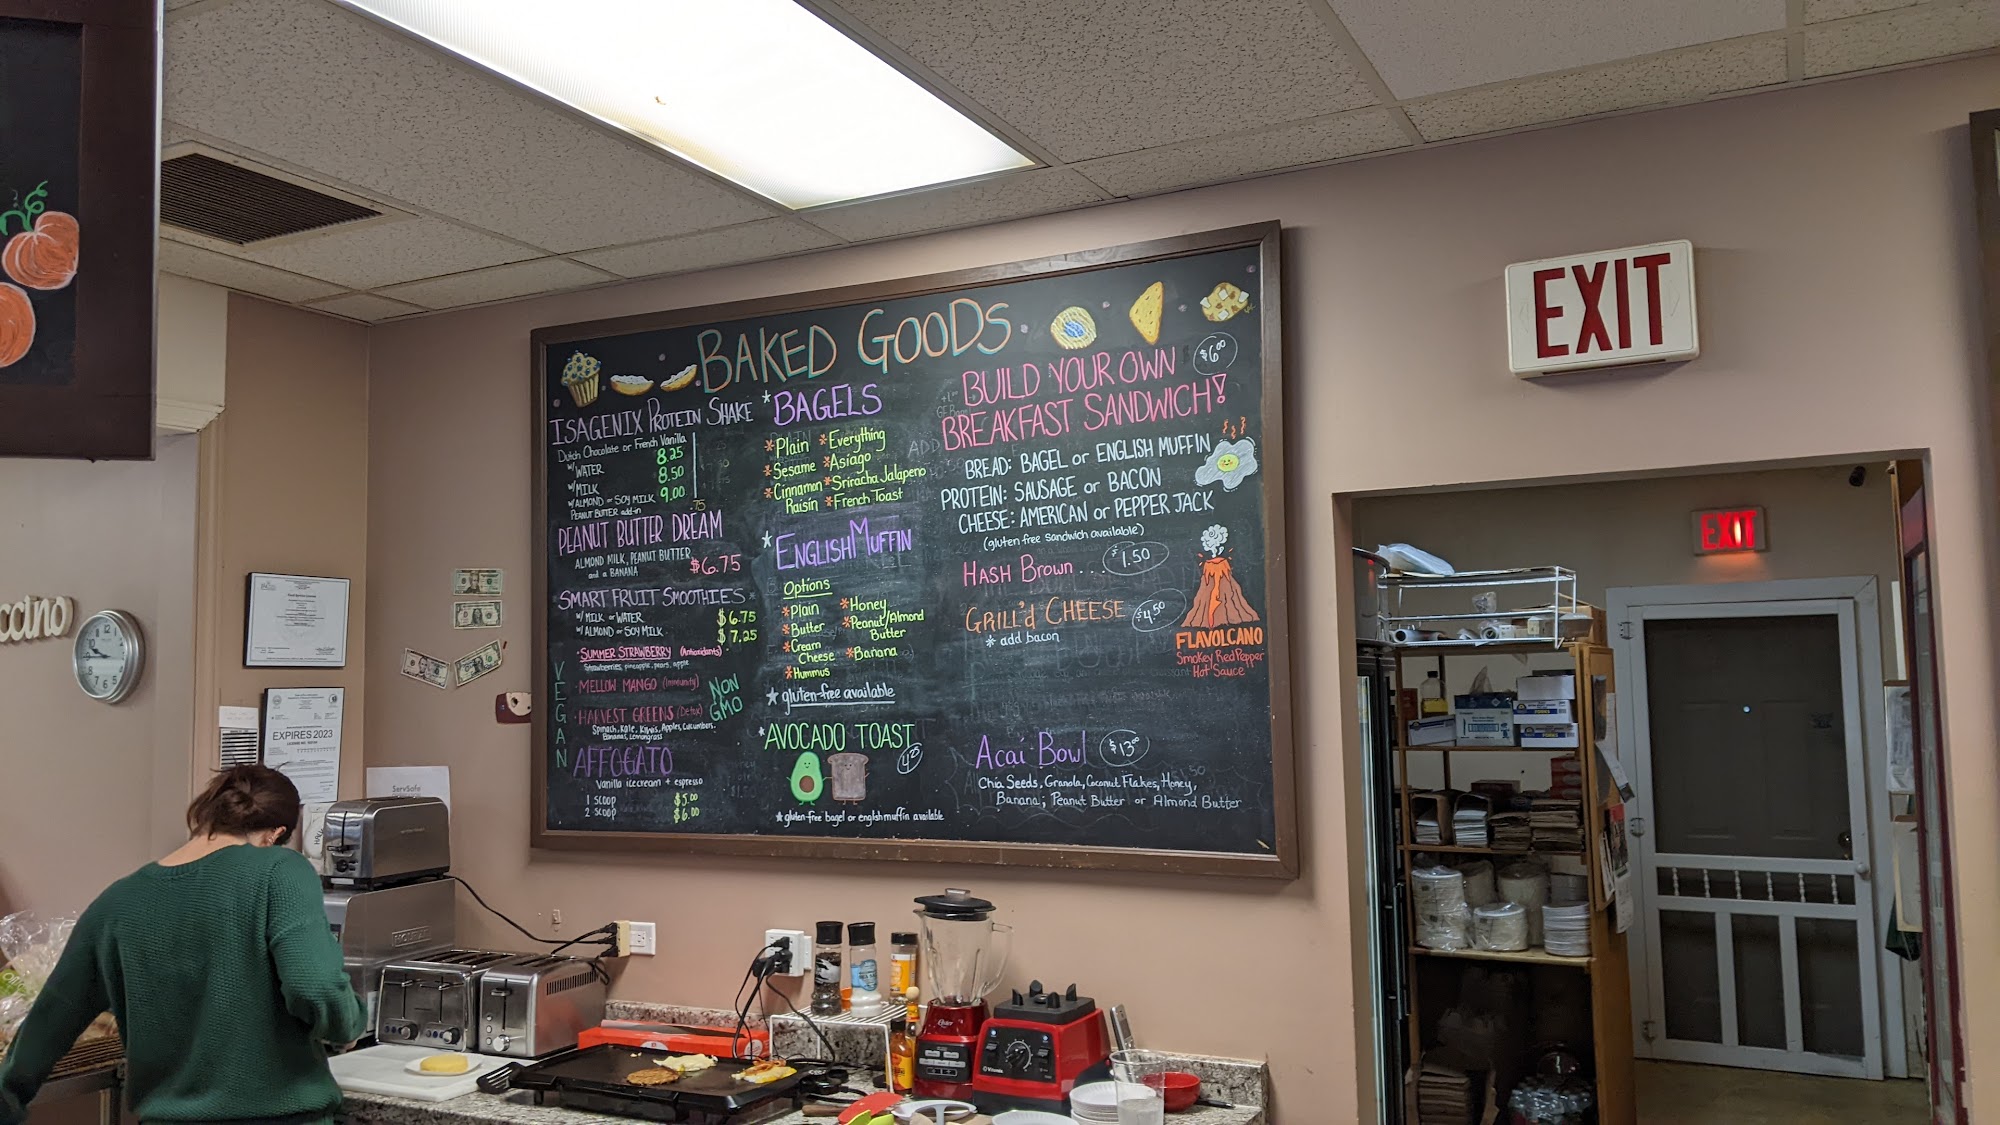 BAKED GOODS
ISAGENIX PROTEIN SHAKE
Dutch Chocolate or French Vanilla
w/ WATER 8.25
w/ MILK 8.50
w/ ALMOND or SOY MILK 9.00
PEANUT BUTTER add-in .75
PEANUT BUTTER DREAM
ALMOND MILK, PEANUT BUTTER
and a BANANA $6.75
SMART FRUIT SMOOTHIES
w/ MILK or WATER $6.75
w/ ALMOND or SOY MILK $7.25
VEGAN
· SUMMER STRAWBERRY (Antioxidants)
Strawberries, pineapple, pears, apple
· MELLOW MANGO (Immunity)
· HARVEST GREENS (Detox)
Spinach, Kale, Kiwis, Apples, Cucumbers,
Bananas, Lemongrass
NON
GMO
AFFOGATO
Vanilla icecream + espresso
1 SCOOP $5.00
2 SCOOP $6.00
* BAGELS
* Plain * Everything
* Sesame * Asiago
* Cinnamon Raisin * Sriracha Jalapeno
* French Toast
* ENGLISH MUFFIN
Options
* Plain
* Butter
* Cream
Cheese
* Hummus
* Honey
* Peanut/Almond
Butter
* Banana
* gluten-free available
* AVOCADO TOAST
4.25
* gluten-free bagel or english muffin available
BUILD YOUR OWN $6.00
BREAKFAST SANDWICH!
BREAD: BAGEL or ENGLISH MUFFIN
PROTEIN: SAUSAGE or BACON
CHEESE: AMERICAN or PEPPER JACK
(gluten free sandwich available)
HASH BROWN .... $1.50
GRILL'd CHEESE $4.50
* add bacon
FLAVOLCANO
Smokey Red Pepper
Hot Sauce
Acaí Bowl $13.00
Chia Seeds, Granola, Coconut Flakes, Honey,
Banana, Peanut Butter or Almond Butter
EXIT
EXIT
ccino
EXPIRES 2023
ServSafe